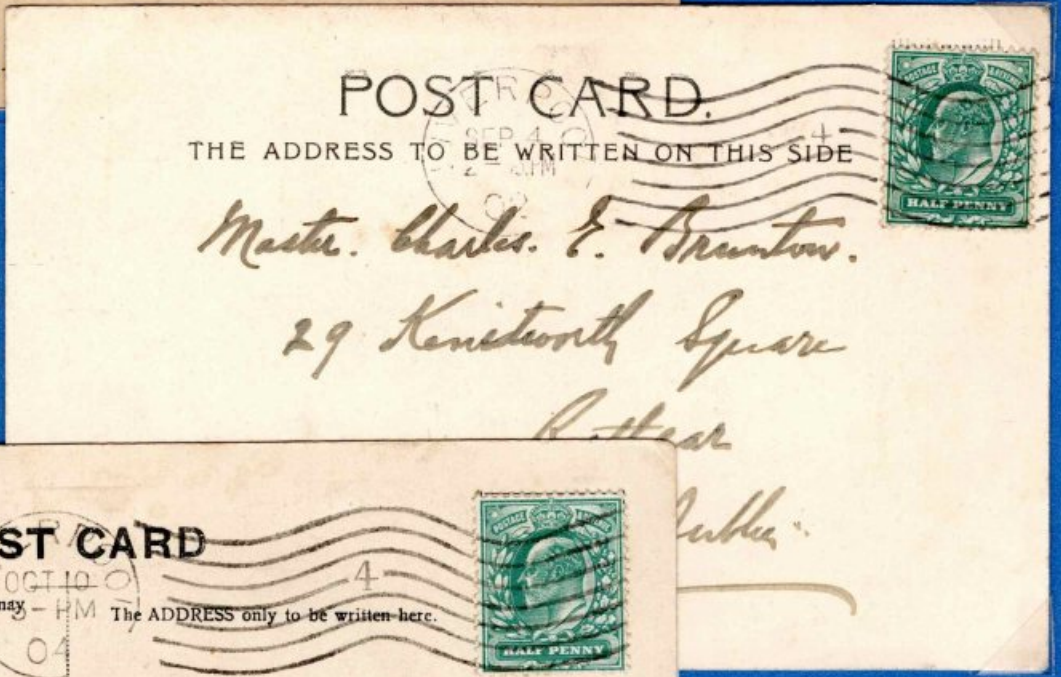 POST CARD.
THE ADDRESS TO BE WRITTEN ON THIS SIDE
LIVERPOOL
SEP 4
2 - PM
4
POSTAGE REVENUE
HALF PENNY
Master. Charles. E. Brunton.
29 Kenilworth Square
Rathgar
Dublin.
ST CARD
OCT 10
3 - PM
04
may
The ADDRESS only to be written here.
4
POSTAGE REVENUE
HALF PENNY